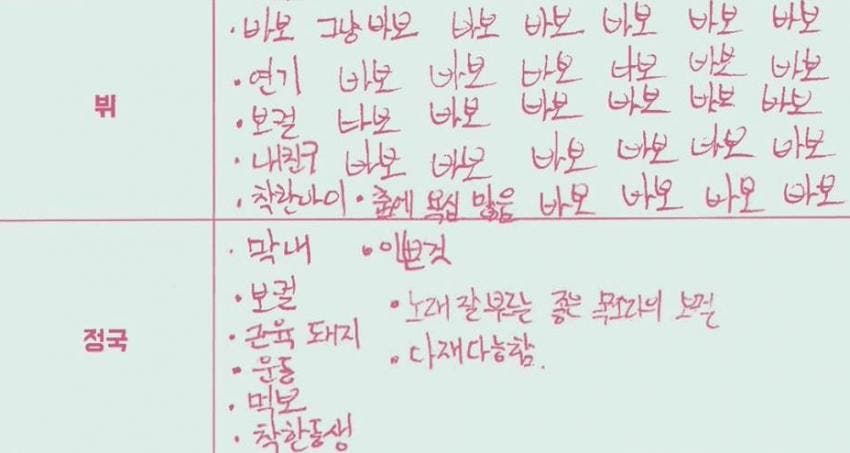 뷔
· 바보 그냥 바보 바보 바보 바보 바보 바보
· 연기 바보 바보 바보 바보 바보 바보
· 보컬 바보 바보 바보 바보 바보 바보
· 내친구 바보 바보 바보 바보 바보 바보
· 착한아이 · 춤에 욕심 많음 바보 바보 바보 바보
정국
· 막내 · 이쁜것
· 보컬
· 노래 잘부르는 좋은 목소리의 보컬
· 근육 돼지
· 다재다능함.
· 운동
· 먹보
· 착한동생